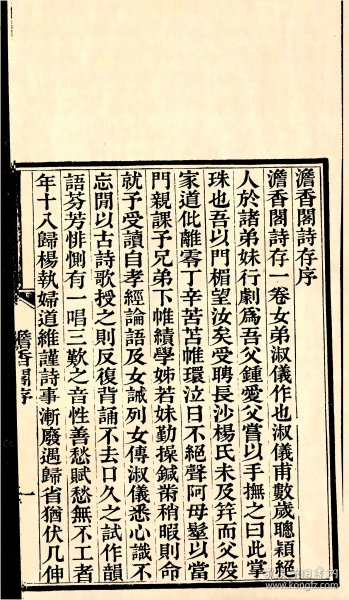 澹香閣詩存序
澹香閣詩存一卷女弟淑儀作也淑儀甫數歲聰穎絕
人於諸弟妹行劇爲吾父鍾愛父嘗以手撫之曰此掌
珠也吾以門楣望汝矣受聘長沙楊氏未及筓而父歿
家道仳離零丁辛苦帷環泣日不絕聲阿母髽以當
門親課予兄弟下帷績學姊若妹勤操鍼黹稍暇則命
就予受讀自孝經論語及女誡列女傳淑儀悉心識不
忘閒以古詩歌授之則反復背誦不去口久之試作韻
語芬芳悱惻有一唱三歎之音性善愁賦愁無不工者
年十八歸楊執婦道維謹詩事漸廢遇歸省猶伏几伸
澹香閣序
一